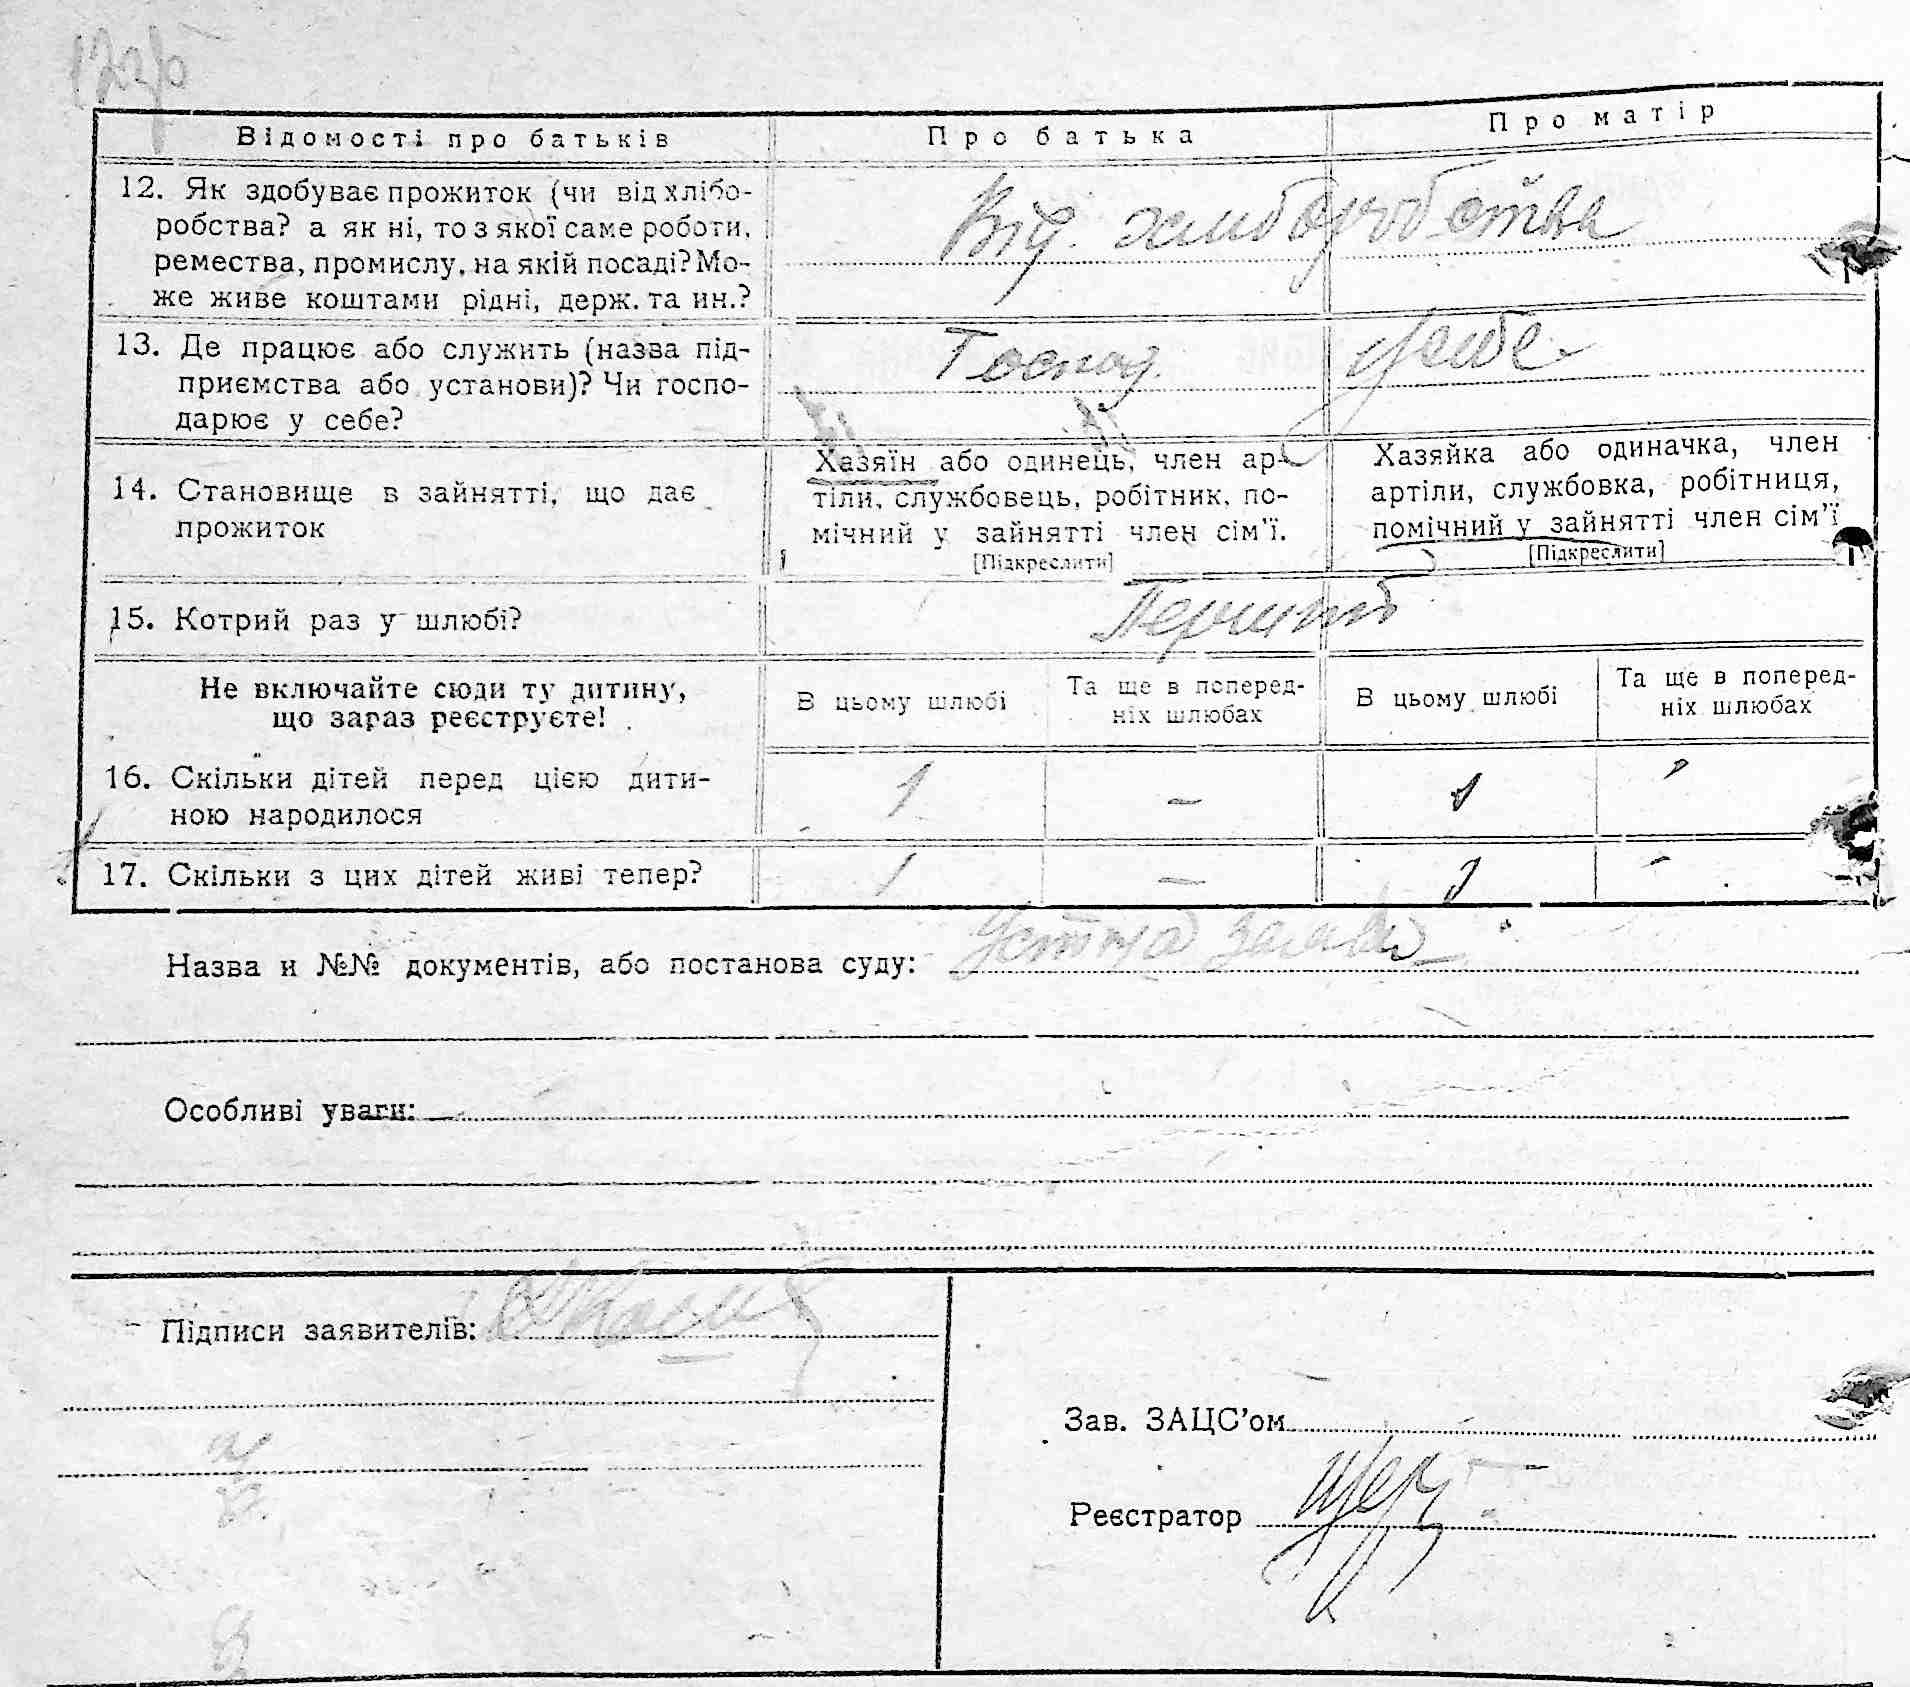 Відомості про батьків
Про батька
Про матір
12. Як здобуває прожиток (чи від хлібо-
робства? а як ні, то з якої саме роботи,
ремества, промислу, на якій посаді? Мо-
же живе коштами рідні, держ. та ин.?
Від. хлиборобства
13. Де працює або служить (назва під-
приємства або установи)? Чи госпо-
дарює у себе?
Господ. у себе
14. Становище в зайнятті, що дає
прожиток
Хазяїн або одинець, член ар-
тіли, службовець, робітник, по-
мічний у зайнятті член сім'ї.
[Підкреслити]
Хазяйка або одиначка, член
артіли, службовка, робітниця,
помічний у зайнятті член сім'ї
[Підкреслити]
15. Котрий раз у шлюбі?
Не включайте сюди ту дитину,
що зараз реєструєте!
В цьому шлюбі
Та ще в поперед-
ніх шлюбах
В цьому шлюбі
Та ще в поперед-
ніх шлюбах
16. Скільки дітей перед цією дити-
ною народилося
1 – 1 -
17. Скільки з цих дітей живі тепер?
1 – 1 -
Назва и №№ документів, або постанова суду: Устна заява
Особливі уваги:
Підписи заявителів:
Зав. ЗАЦС'ом
Реєстратор